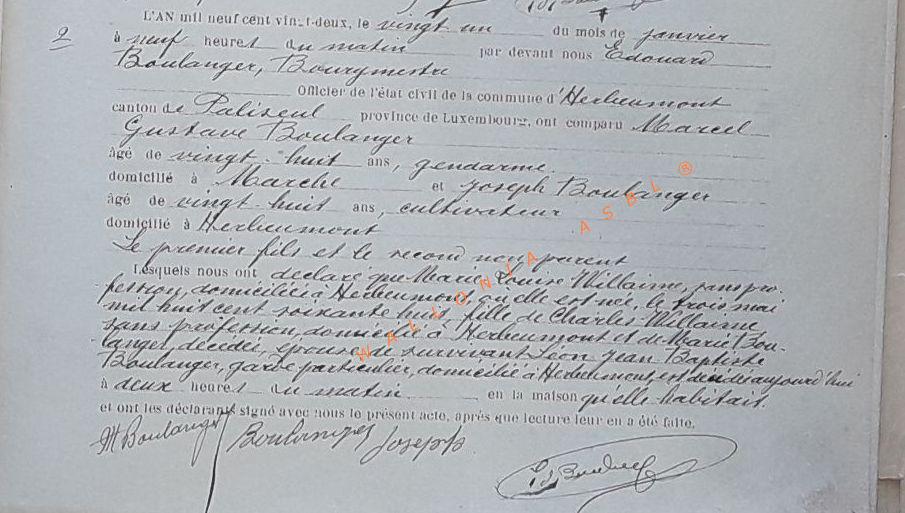 2
L'AN mil neuf cent vingt-deux, le vingt un du mois de janvier
à neuf heures du matin par devant nous Edouard
Boulanger, Bourgmestre
Officier de l'état civil de la commune d'Herbeumont
canton de Paliseul province de Luxembourg, ont comparu Marcel
Gustave Boulanger
âgé de vingt-huit ans, gendarme
domicilié à Marche et Joseph Boulanger
âgé de vingt-huit ans, cultivateur
domicilié à Herbeumont
Le premier fils et le second non parent
Lesquels nous ont déclaré que Marie Louise Willaime, sans pro-
fession, domiciliée à Herbeumont, où elle est née, le trois mai
mil huit cent soixante huit, fille de Charles Willaime
sans profession, domicilié à Herbeumont et de Marie Bou-
langer, décédée, épouse de survivant Léon Jean Baptiste
Boulanger, garde particulier, domicilié à Herbeumont, est décédée aujourd'hui
à deux heures du matin en la maison qu'elle habitait.
et ont les déclarants signé avec nous le présent acte, après que lecture leur en a été faite.
M Boulanger Boulanger Joseph
Ed Boulanger
WALLONIA ASBL ®